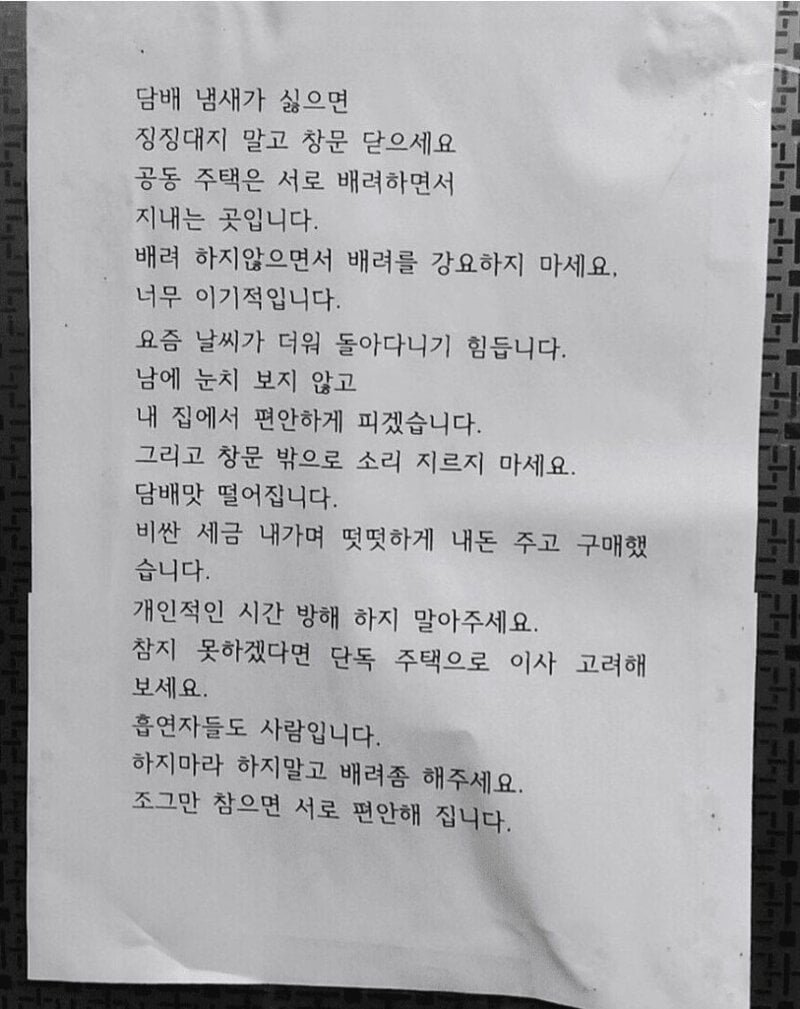 담배 냄새가 싫으면
징징대지 말고 창문 닫으세요
공동 주택은 서로 배려하면서
지내는 곳입니다.
배려 하지않으면서 배려를 강요하지 마세요,
너무 이기적입니다.
요즘 날씨가 더워 돌아다니기 힘듭니다.
남에 눈치 보지 않고
내 집에서 편안하게 피겠습니다.
그리고 창문 밖으로 소리 지르지 마세요.
담배맛 떨어집니다.
비싼 세금 내가며 떳떳하게 내돈 주고 구매했
습니다.
개인적인 시간 방해 하지 말아주세요.
참지 못하겠다면 단독 주택으로 이사 고려해
보세요.
흡연자들도 사람입니다.
하지마라 하지말고 배려좀 해주세요.
조그만 참으면 서로 편안해 집니다.